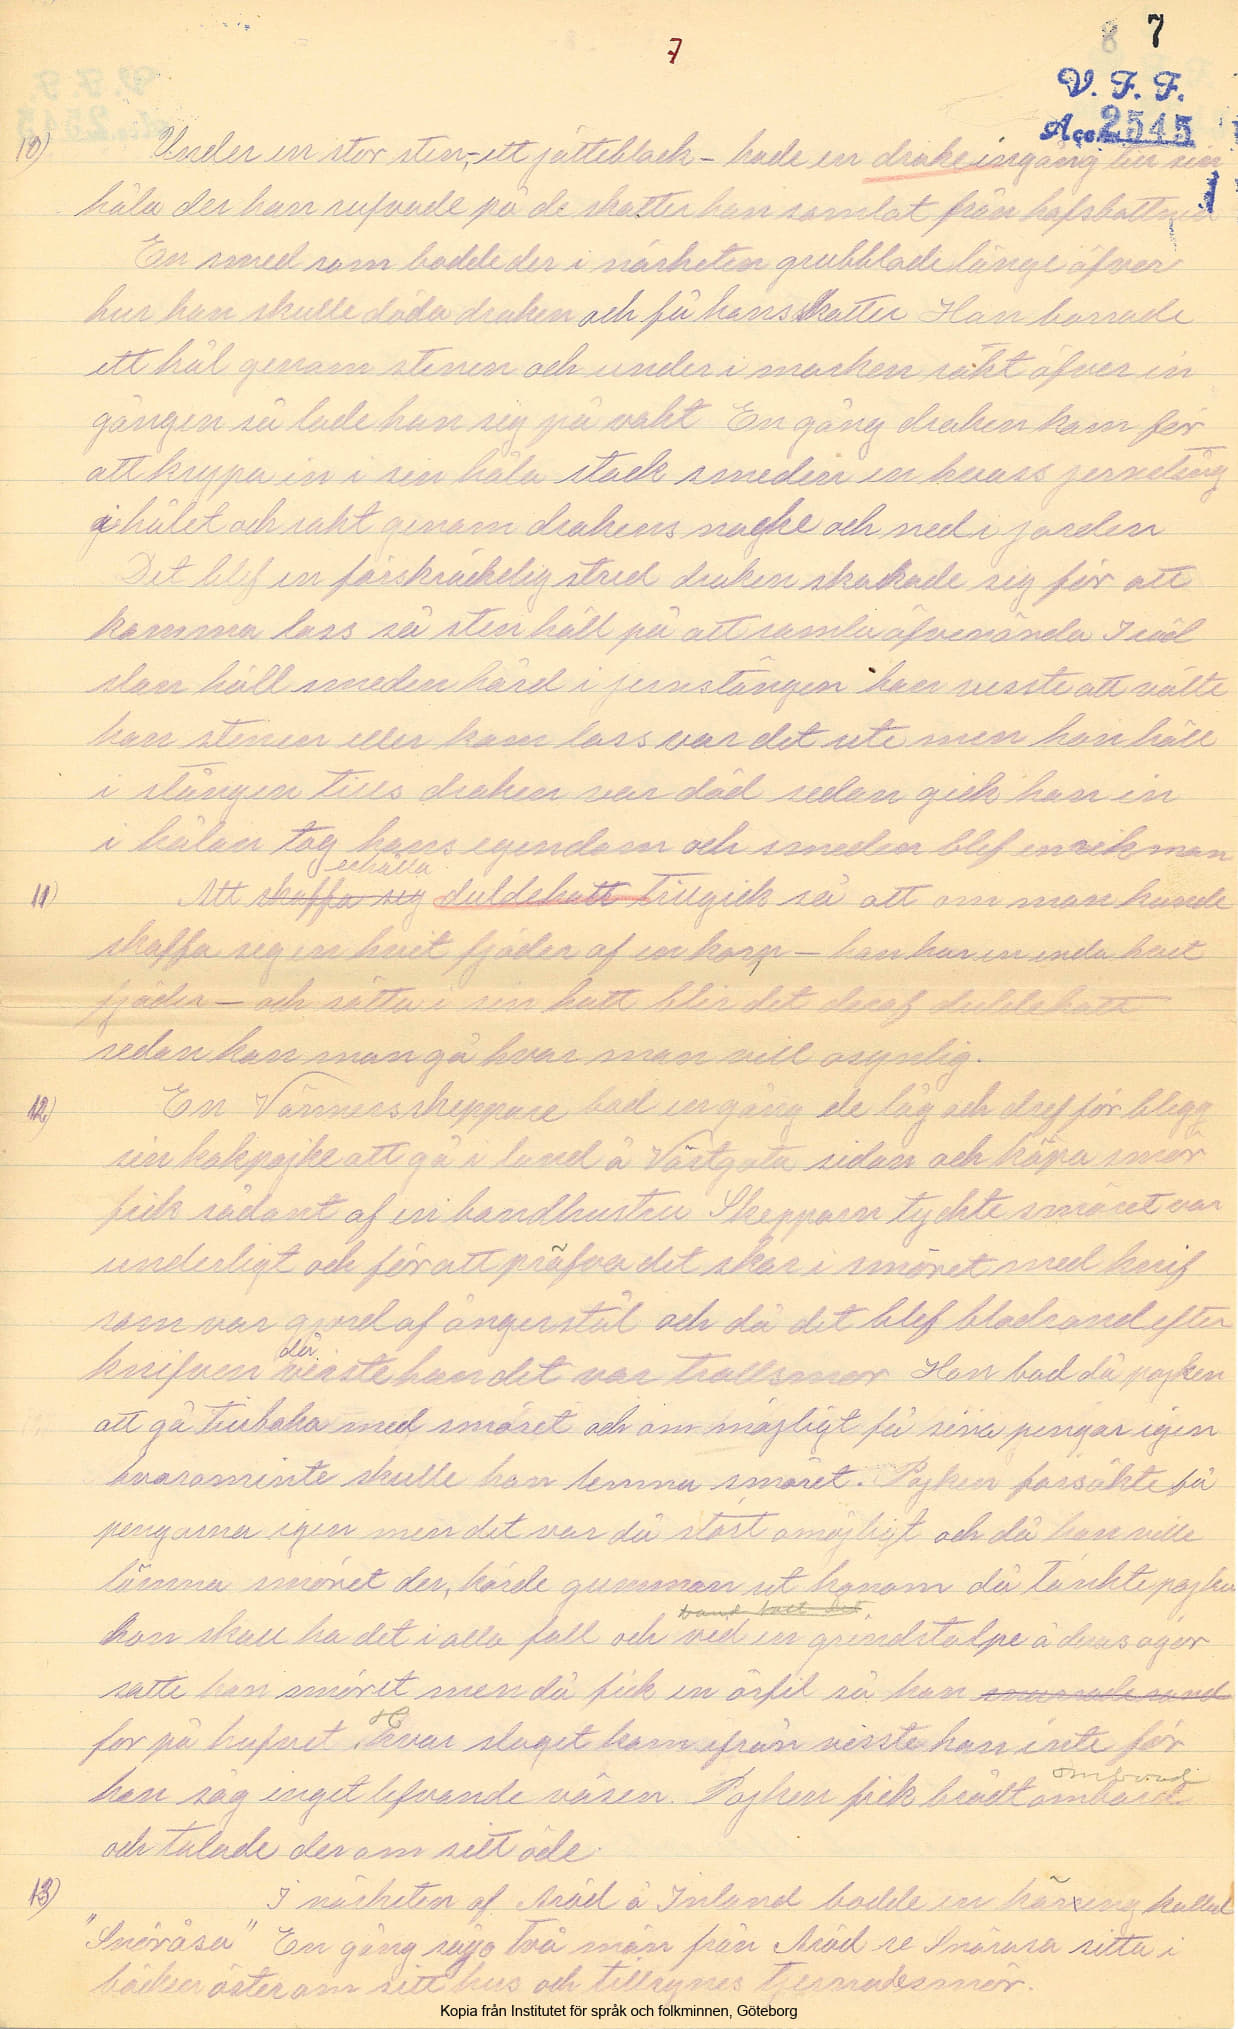 8 7
7
V. F. F.
Acc. 2545
10) Under en stor sten, ett jätteblock – hade en drake ingång till sin
håla der han rufvade på de skatter han samlat från hafsbottnen
En smed som bodde der i närheten grubblade länge öfver
hur han skulle döda draken och få hans skatter Han borrade
ett hål genom stenen och under i marken rakt öfver in
gången så lade han sig på vakt En gång draken kom för
att krypa in i sin håla stack smeden en hvass jernstång
i hålet och rakt genom drakens nacke och ned i jorden
Det blef en förskräckelig strid draken skakade sig för att
komma loss så sten höll på att ramla öfverända I
höll smeden hård i jernstången han visste att välte
han stenen eller kom loss var det ute men han höll
i stången tills draken var död sedan gick han in
i hålan tog hans egendom och smeden blef en rik man
erhålla
11) Att skaffa sig duldehatt tillgick så att om man kunde
skaffa sig en hvit fjäder af en korp – han har en enda hvit
fjäder – och sätta i sin hatt blir det deraf duldehatt
sedan kan man gå hvar man vill osynlig.
12) En Vänersskeppare bad en gång de låg och dref för bligg
sin kokpojke att gå i land å Västgöta sidan och köpa smör
fick sådant af en bondhustru Skepparn tyckte smöret var
underligt och för att pröfva det skar i smöret med knif
som var gjord af ångerstål och då det blef blodrand efter
der
knifven visste han det var trollsmör Han bad då pojken
att gå tillbaka med smöret och om möjligt få sina pengar igen
hvarominte skulle han lemna smöret. Pojken försökte få
pengarna igen men det var då stört omöjligt och då han ville
lämna smöret der, körde gumman ut honom då tänkte pojken
band fast det
hon skall ha det i alla fall och ved en grindstolpe å deras ägor
satte han smöret men då fick en örfil så han snurrade rund
for på hufvet Hvar slaget kom ifrån visste han inte för
ombord
han såg inget lefvande väsen. Pojken fick brådt ombord
och talade der om sitt öde.
13) I närheten af Aröd å Inland bodde en käring kallad
"Snöråsa" En gång sågo två män från Aröd se Snörara sitta i
bäcken öster om sitt hus och tillsynes tjerna smör.
Kopia från Institutet för språk och folkminnen, Göteborg